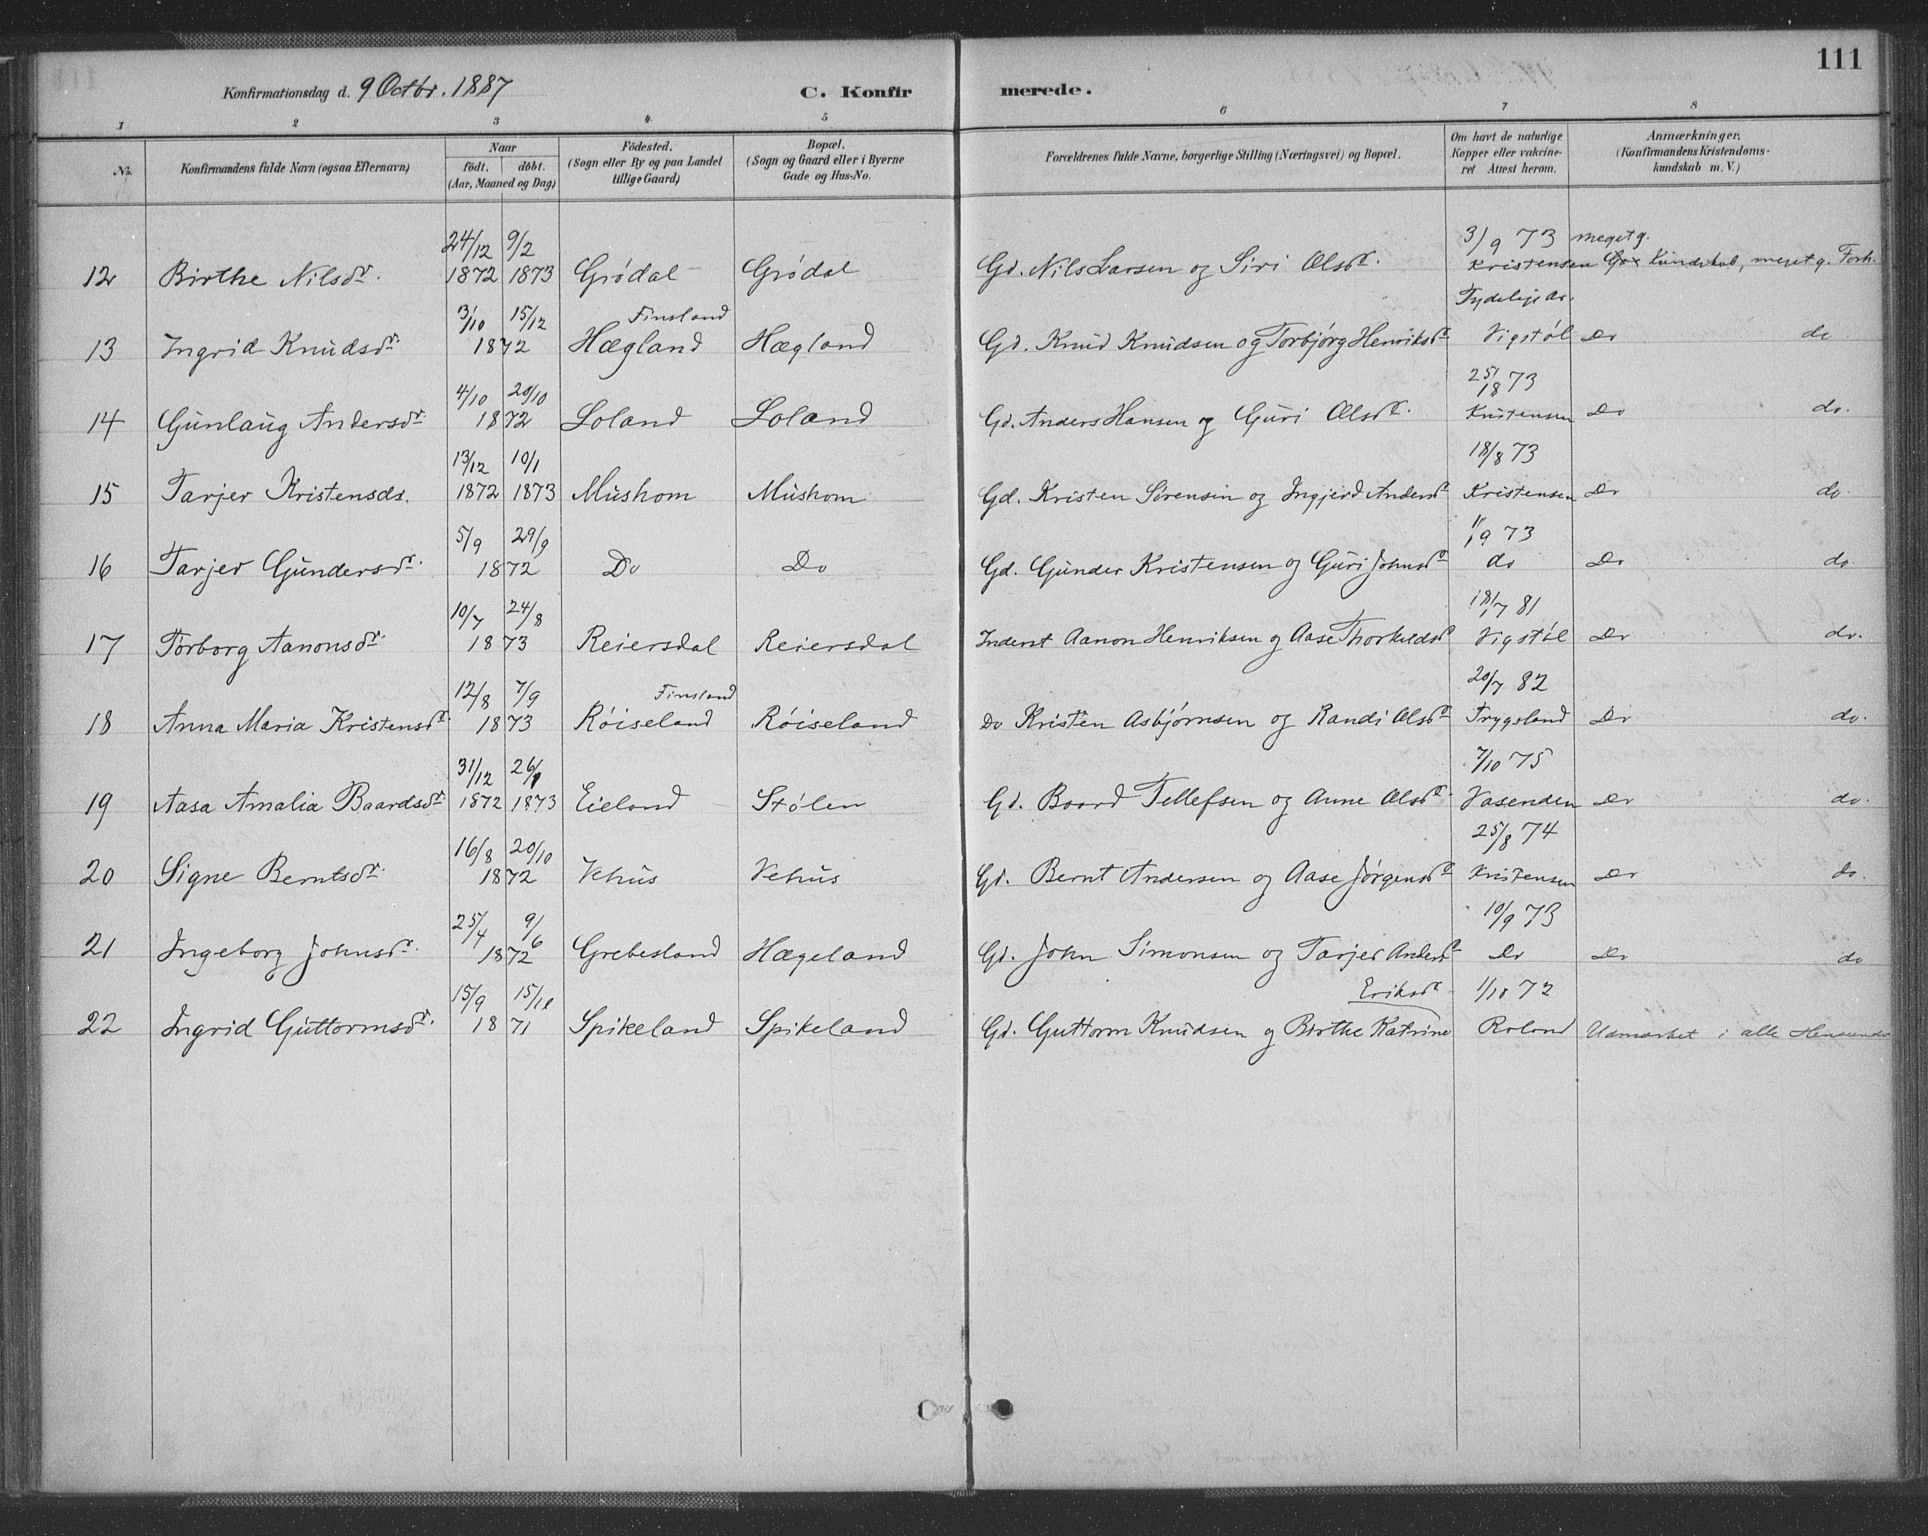 111
Konfirmationsdag d. 9 Octbr. 1887 C. Konfirmerede.
1 2 3 4 5 6 7 8
No. Konfirmandens fulde Navn (ogsaa Efternavn) Naar födt. döbt. (Aar, Maaned og Dag) Födested. (Sogn eller By og paa Landet tillige Gaard) Bopæl. (Sogn og Gaard eller i Byerne Gade og Hus-No. Forældrenes fulde Navne, borgerlige Stilling (Næringsvei) og Bopæl. Om havt de naturlige Kopper eller vakcineret Attest herom. Anmærkninger, (Konfirmandens Kristendomskundskab m. V.)
24/12 9/2 3/9 73 meget g.
12 Birthe Nilsdr. 1872 1873 Grödal Grödal Gd. Nils Larsen og Siri Olsdr. Kristensen Kundskab, meget g. Forh.
3/10 15/12 Finsland
13 Ingrid Knudsdr. 1872 Hægland Hægland Gd. Knud Knudsen og Torbjørg Henriksdr Vigstöl Do do
4/10 20/10 25/18 73
14 Gunlaug Andersdr 1872 Loland Loland Gd. Anders Hansen og Guri Olsdr. Kristensen Do do.
13/12 10/1 18/8 73
15 Tarjer Kristensdr. 1872 1873 Mushom Mushom Gd. Kristen Sørensen og Ingjerd Andersdr Kristensen Do do.
5/9 29/9 11/9 73
16 Tarjer Gundersdr. 1872 Do Do Gd. Gunder Kristensen og Guri Johnsdr do Do do.
10/7 24/8 18/7 81
17 Torborg Aanonsdr. 1873 Reiersdal Reiersdal Inderst Aanon Henriksen og Aase Thorkeldsdr Vigstöl Do do.
12/8 7/9 Finsland 20/7 82
18 Anna Maria Kristensdr. 1873 Röiseland Röiseland Do Kristen Asbjørnsen og Randi Olsdr Trygsland Do do.
31/12 26/1 7/10 75
19 Aasa Amalia Baardsdr 1872 1873 Eieland Stölen Gd. Baard Tellefsen og Anne Olsdr. Vasenden Do do.
16/8 20/10 25/8 74
20 Signe Berntsdr. 1872 Vehus Vehus Gd. Bernt Andersen og Aase Jørgensdr Kristensen Do do.
25/4 9/6 10/9 73
21 Ingeborg Johnsdr. 1872 Grebesland Hægeland Gd. John Simonsen og Tarjer Andersdr Do Do do
15/9 15/10 Eriksdr 1/10 72
22 Ingrid Guttormsdr. 1871 Spikeland Spikeland Gd. Guttorm Knudsen og Birthe Katrine Roland Udmærket i alle Hensender